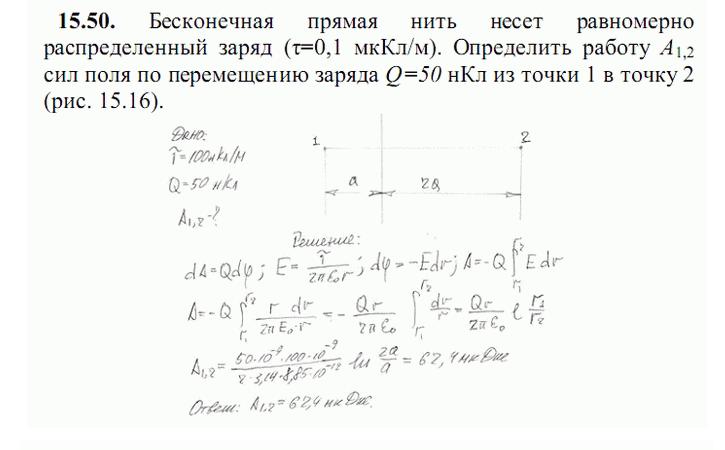 15.50. Бесконечная прямая нить несет равномерно
распределенный заряд (τ=0,1 мкКл/м). Определить работу A₁,₂
сил поля по перемещению заряда Q=50 нКл из точки 1 в точку 2
(рис. 15.16).
Дано:
τ = 100нКл/м
Q = 50 нКл
A₁,₂ - ?
1 2
a 2a
Решение:
dA = Qdφ; E = τ/(2πε₀r); dφ = -Edr; A = -Q∫_{r₁}^{r₂} E dr
A = -Q ∫_{r₁}^{r₂} τ dr/(2πε₀·r) = - Qτ/(2πε₀) ∫_{r₁}^{r₂} dr/r = Qτ/(2πε₀) l r₁/r₂
A₁,₂ = 50·10⁻⁹·100·10⁻⁹/(2·3,14·8,85·10⁻¹²) ln 2a/a = 62,4 мкДж
Ответ: A₁,₂ = 62,4 мкДж.